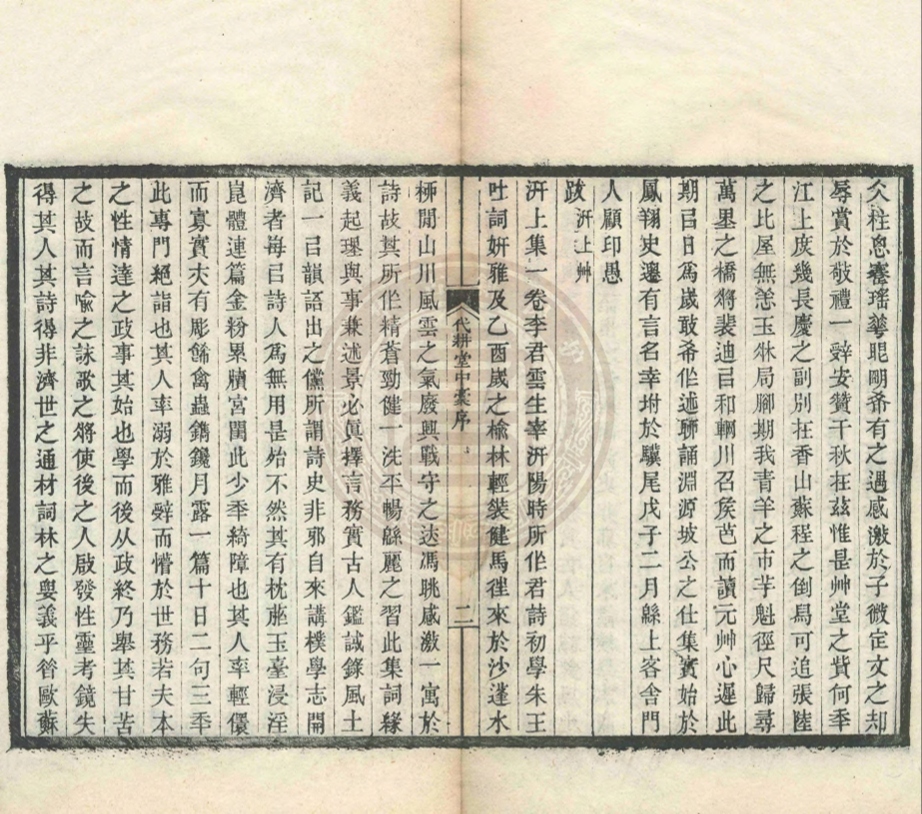 久柱恖嗇瑤華睍朙喬有之過感激於子微定文之却
辱賞於敬禮一辤安贊千秋在茲惟是艸堂之貲何季
江上庻幾長慶之副別在香山蘇程之倒舄可追張陸
之比屋無恙玉𣏟局腳期我青羊之市芋魁徑尺歸尋
萬里之橋將裴迪㠯和輞川召矦芭而讀元艸心遲此
期㠯日爲嵗敢希作述聊誦淵源坡公之仕集實始於
鳳翔史遷有言名幸坿於驥尾戊子二月緜上客舍門
人顧印愚
跋汧上艸
汧上集一卷李君雲生宰汧陽時所作君詩初學朱王
吐詞姸雅及乙酉嵗之榆林輕裝健馬徃來於沙蓬水
代耕堂中稾序
二
栁閒山川風雲之氣廢興戰守之迹馮眺感激一寓於
詩故其所作精蒼勁健一洗平暢緜麗之習此集詞緣
義起理與事兼述景必眞擇言務實古人鑑誡錄風土
記一㠯韻語出之儻所謂詩史非邪自來講樸學志開
濟者每㠯詩人爲無用是殆不然其有枕葄玉臺浸淫
崑體連篇金粉累牘宮閨此少秊綺障也其人率輕儇
而寡實夫有彫餙禽蟲鐫鑱月露一篇十日二句三秊
此專門絕詣也其人率溺於雅辤而懵於世務若夫本
之性情達之政事其始也學而後从政終乃舉其甘苦
之故而言喩之詠歌之將使後之人啟發性靈考鏡失
得其人其詩得非濟世之通材詞林之㚻義乎昝歐蘇